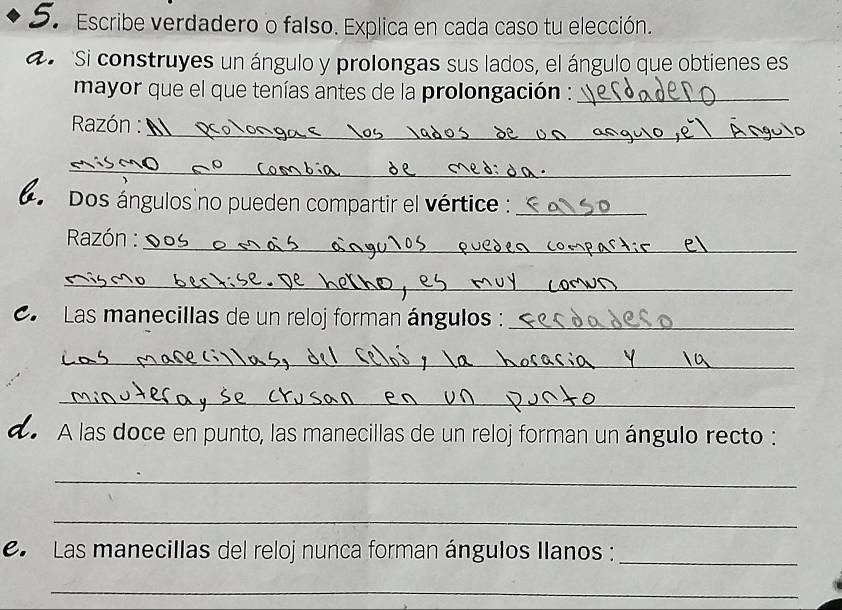 5. Escribe verdadero o falso. Explica en cada caso tu elección.
a. Si construyes un ángulo y prolongas sus lados, el ángulo que obtienes es
mayor que el que tenías antes de la prolongación : Verdadero
Razón : Al prolongar los lados de un angulo, él Ángulo
mismo no combia de medida.
b. Dos ángulos no pueden compartir el vértice : Falso
Razón : Dos o más ángulos pueden compartir el
mismo bertise. De hecho, es muy comun
c. Las manecillas de un reloj forman ángulos : ferdadero
Las manecillas, del reloj, la horaria y la
minutera, se crusan en un punto
d. A las doce en punto, las manecillas de un reloj forman un ángulo recto :
e. Las manecillas del reloj nunca forman ángulos llanos :